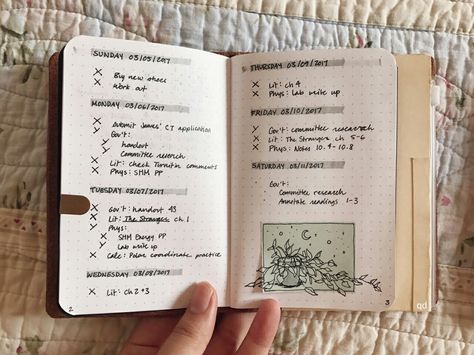 SUNDAY 03/05/2017
X Buy new shoes
X Work out
MONDAY 03/06/2017
X Submit James' CT application
Gov't:
handout
Committee research
X Lit: check Turnitin comments
X Phys: SHM PP
TUESDAY 03/07/2017
X Gov't: handout 43
X Lit: The Stranger ch 1
Phys:
SHM Energy PP
Lab write up
X Calc: Polar coordinate practice
WEDNESDAY 03/08/2017
X Lit: ch 2+3
2
THURSDAY 03/09/2017
X Lit: ch 4
X Phys: Lab write up
FRIDAY 03/10/2017
Gov't: committee research
X Lit: The Stranger ch 5-6
X Phys: Notes 10.4-10.8
SATURDAY 03/11/2017
Gov't:
Committee research
Annotate readings 1-3
3
qd